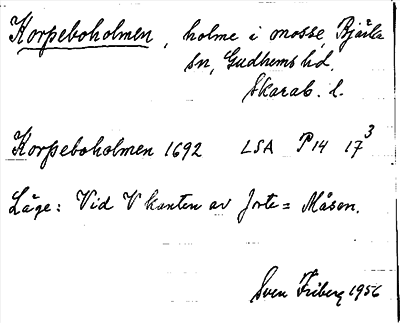 Korpeboholmen, holme i mosse, Bjärka
sn, Gudhems hd.
Skarab. l.
Korpeboholmen 1692 LSA P14 17³
Läge: Vid V kanten av Jorte= Måsen.
Sven Friberg 1956